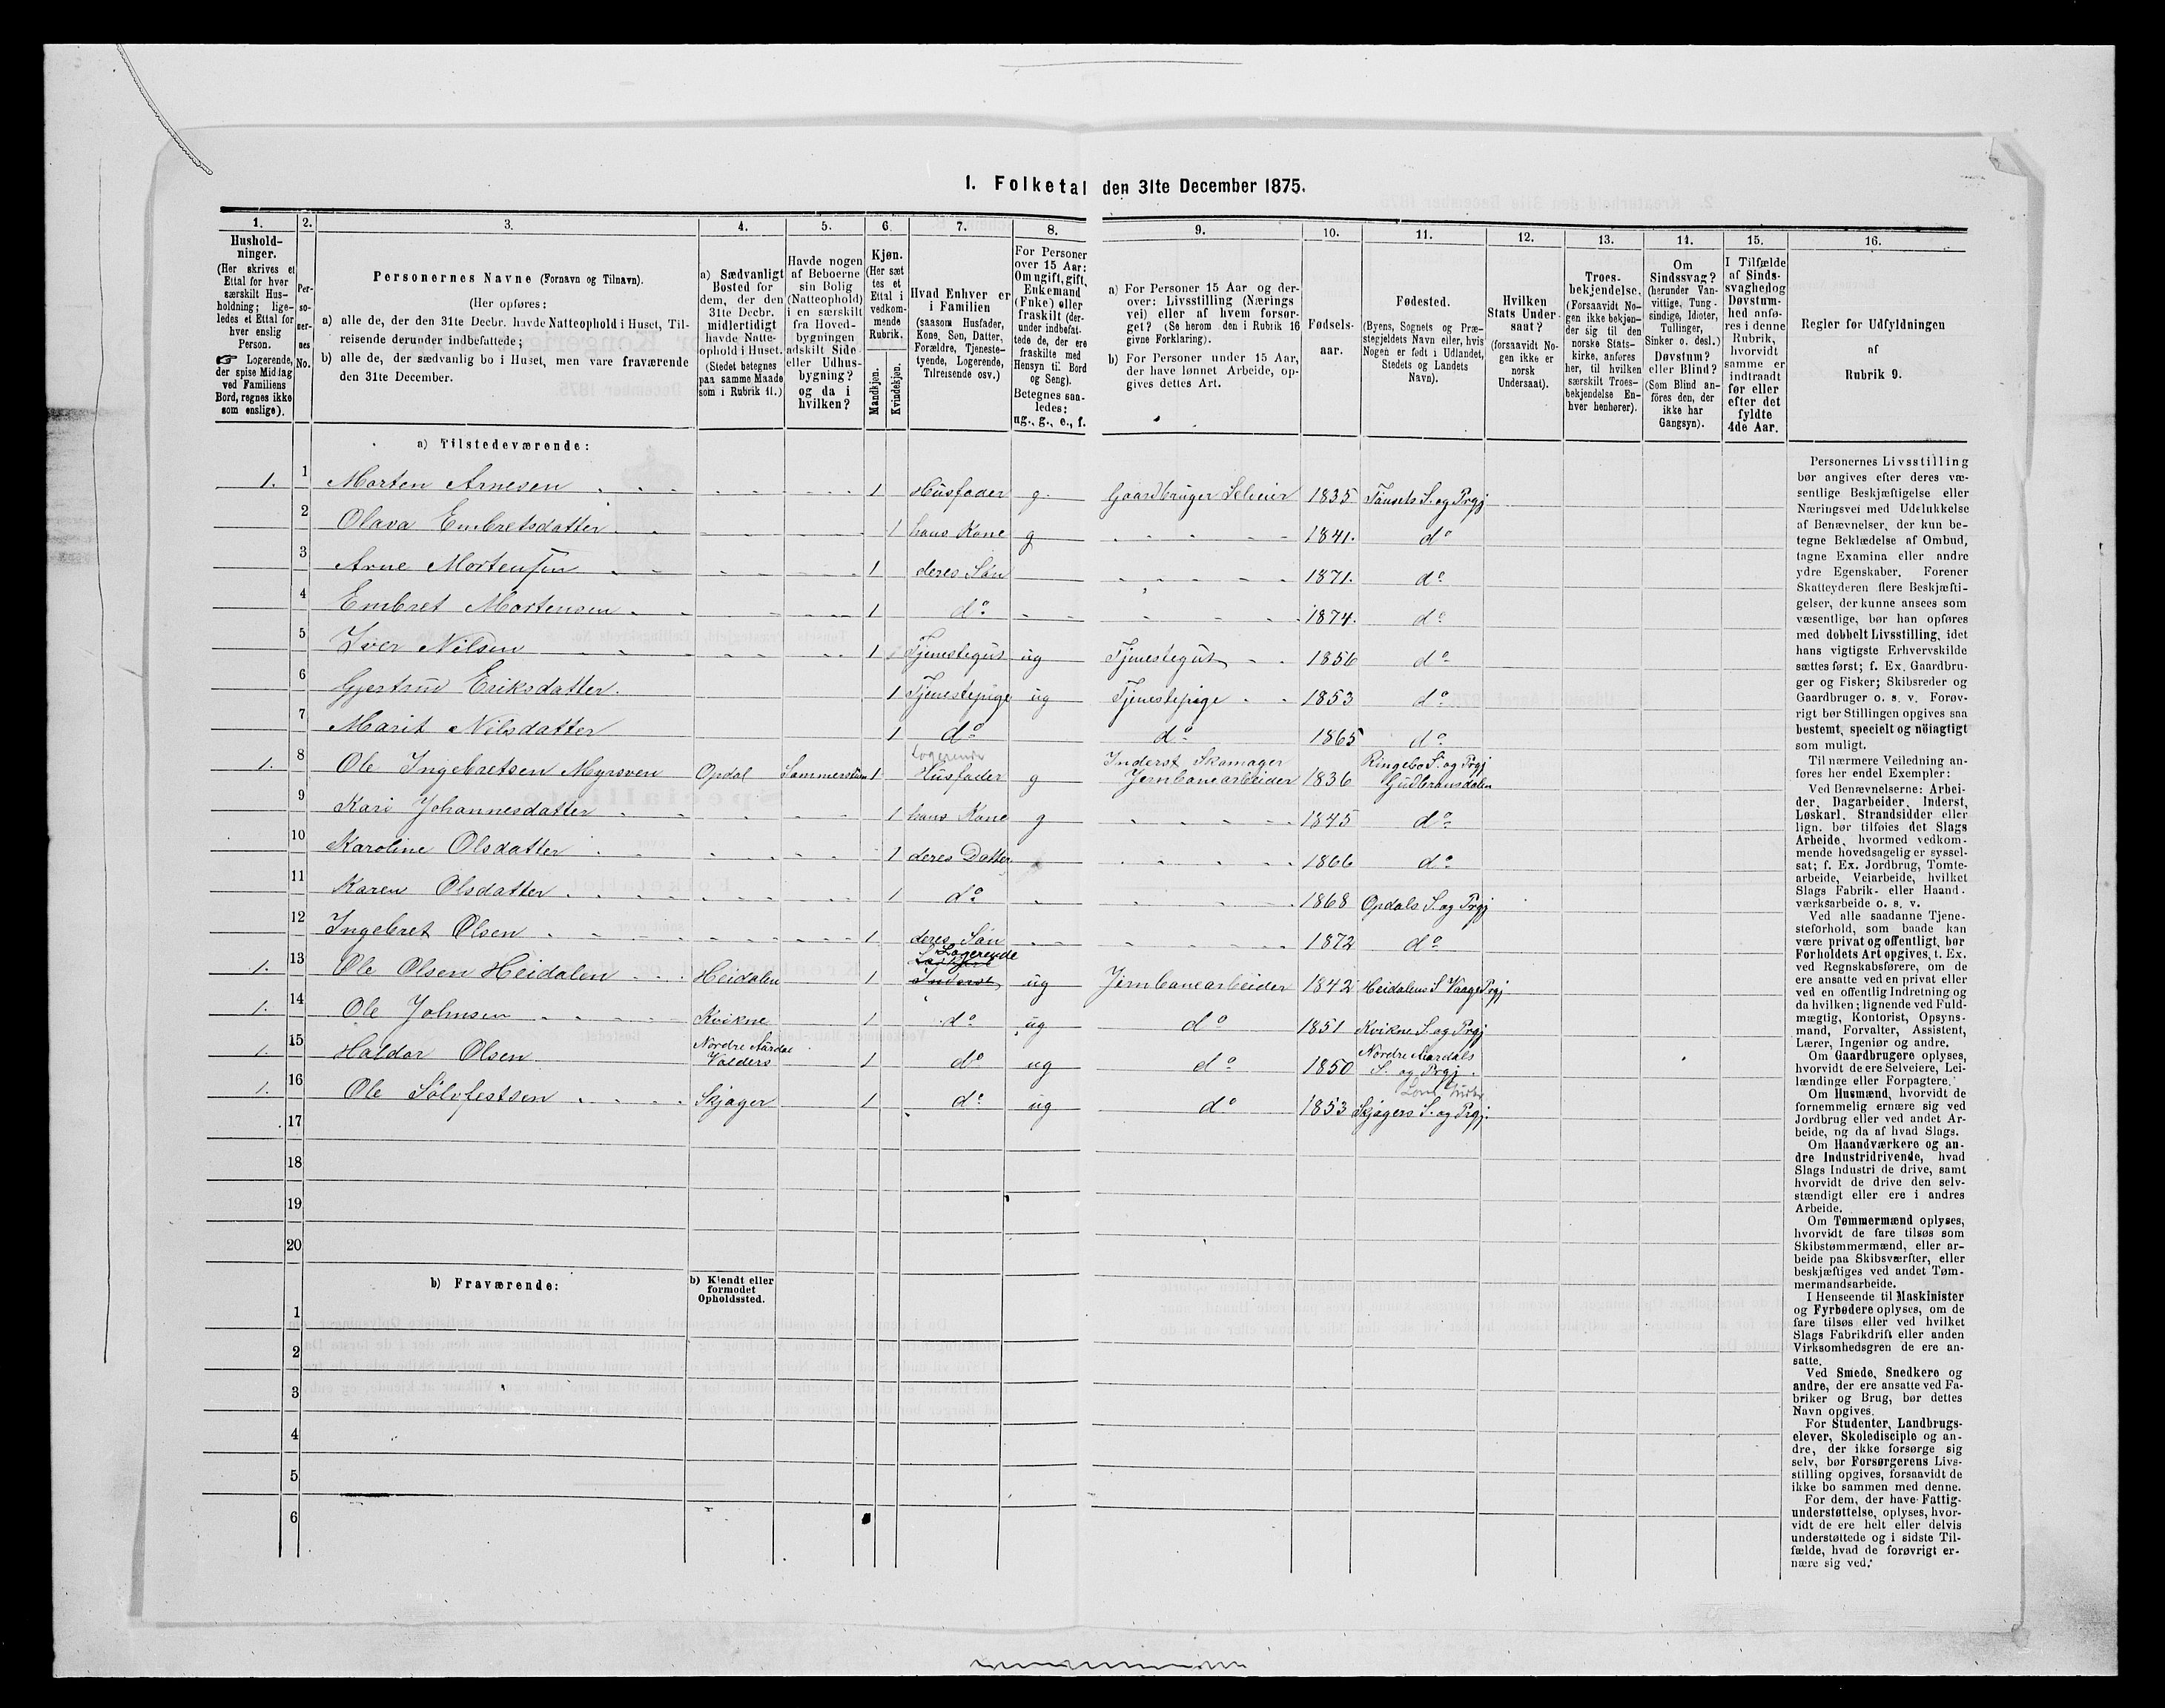 1. Folketal den 31te December 1875.
1. 2. 3. 4. 5. 6. 7. 8. 9. 10. 11. 12. 13. 14. 15. 16.
Hushold-
ninger.
(Her skrives et
Ettal for hver
særskilt Hus-
holdning; lige-
ledes et Ettal for
hver enslig
Person.
☞ Logerende,
der spise Middag
ved Familiens
Bord, regnes ikke
som enslige).
Per-
so-
ner-
nes
No.
Personernes Navne (Fornavn og Tilnavn).
(Her opføres:
a) alle de, der den 31te Decbr. havde Natteophold i Huset, Til-
reisende derunder indbefattede;
b) alle de, der sædvanlig bo i Huset, men vare fraværende
den 31te December.
a) Sædvanligt
Bosted for
dem, der den
31te Decbr.
midlertidigt
havde Natte-
ophold i Huset.
(Stedet betegnes
paa samme Maade
som i Rubrik 11.)
Havde nogen
af Beboerne
sin Bolig
(Natteophold)
i en særskilt
fra Hoved-
bygningen
adskilt Side-
eller Udhus-
bygning?
og da i
hvilken?
Kjøn.
(Her sæt-
tes et
Ettal i
vedkom-
mende
Rubrik.
Mandkjøn.
Kvindekjøn.
Hvad Enhver er
i Familien
(saasom Husfader,
Kone, Søn, Datter,
Forældre, Tjeneste-
tyende, Logerende,
Tilreisende osv.)
For Personer
over 15 Aar:
Om ugift, gift,
Enkemand
(Enke) eller
fraskilt (der-
under indbefat-
tede de, der ere
fraskilte med
Hensyn til Bord
og Seng).
Betegnes saa-
ledes:
ug., g., e., f.
a) For Personer 15 Aar og der-
over: Livsstilling (Nærings-
vei) eller af hvem forsør-
get? (Se herom den i Rubrik 16
givne Forklaring).
b) For Personer under 15 Aar,
der have lønnet Arbeide, op-
gives dettes Art.
Fødsels-
aar.
Fødested.
(Byens, Sognets og Præ-
stegjeldets Navn eller, hvis
Nogen er født i Udlandet,
Stedets og Landets
Navn).
Hvilken
Stats Under-
saat?
(forsaavidt No-
gen ikke er
norsk
Undersaat).
Troes-
bekjendelse.
(Forsaavidt No-
gen ikke bekjen-
der sig til den
norske Stats-
kirke, anføres
her, til hvilken
særskilt Troes-
bekjendelse En-
hver henhører).
Om
Sindssvag?
(herunder Van-
vittige, Tung-
sindige, Idioter,
Tullinger,
Sinker o. desl.)
Døvstum?
eller Blind?
(Som Blind an-
føres den, der
ikke har
Gangsyn).
I Tilfælde
af Sinds-
svaghed og
Døvstum-
hed anfø-
res i denne
Rubrik,
hvorvidt
samme er
indtraadt
før eller
efter det
fyldte
4de Aar.
Regler for Udfyldningen
af
Rubrik 9.
a) Tilstedeværende:
1. 1 Morten Arnesen 1 Husfader g. Gaardbruger Selveier 1835 Tønsets S. og Prgj
2 Olava Embretsdatter 1 hans Kone g 1841. do
3 Arne Mortensen 1 deres Søn 1871. do
4 Embret Mortensen 1 do 1874. do
5 Iver Nilsen 1 Tjenestegut ug Tjenestegut 1856 do
6 Gjertrud Eriksdatter. 1 Tjenestepige ug Tjenestepige 1853 do
7 Marit Nilsdatter 1 do do 1865 do
1. 8 Ole Ingebretsen Myrsven Opdal Sommerstuen 1 Logerende Husfader g Inderst Skomager Jernbanearbeider 1836 Ringebo S. og Prgj Gudbransdalen
9 Kari Johannesdatter 1 hans Kone g 1845 do
10 Karoline Olsdatter 1 deres Datter 1866 do
11 Karen Olsdatter 1 do 1868 Opdals S. og Prgj
12 Ingebret Olsen 1 deres Søn 1872 do
1. 13 Ole Olsen Heidalen Heidalen 1 Logerende Inderst ug Jernbanearbeider 1842 Heidalens S Vaage Prgj
1. 14 Ole Johnsen Kvikne 1 do ug do 1851 Kvikne S. og Prgj
1. 15 Haldor Olsen Nordre Aurdal Valders 1 do ug do 1850 Nordre Aurdals S. og Prgj.
1. 16 Ole Sølvfestsen Skjager 1 do ug do 1853 Skjagers S. og Prgj. Lom
17
18
19
20
b) Fraværende:
b) Kjendt eller
formodet
Opholdssted.
1
2
3
4
5
6
Personernes Livsstilling
bør angives efter deres væ-
sentlige Beskjæftigelse eller
Næringsvei med Udelukkelse
af Benævnelser, der kun be-
tegne Beklædelse af Ombud,
tagne Examina eller andre
ydre Egenskaber. Forener
Skatteyderen flere Beskjæfti-
gelser, der kunne ansees som
væsentlige, bør han opføres
med dobbelt Livsstilling, idet
hans vigtigste Erhvervskilde
sættes først; f. Ex. Gaardbru-
ger og Fisker; Skibsreder og
Gaardbruger o. s. v. Forøv-
rigt bør Stillingen opgives saa
bestemt, specielt og nöiagtigt
som muligt.
Til nærmere Veiledning an-
føres her endel Exempler:
Ved Benævnelserne: Arbei-
der, Dagarbeider, Inderst,
Løskarl, Strandsidder eller
lign. bør tilføies det Slags
Arbeide, hvormed vedkom-
mende hovedsagelig er syssel-
sat; f. Ex. Jordbrug, Tomte-
arbeide, Veiarbeide, hvilket
Slags Fabrik- eller Haand-
værksarbeide o. s. v.
Ved alle saadanne Tjene-
steforhold, som baade kan
være privat og offentligt, bør
Forholdets Art opgives, t. Ex.
ved Regnskabsførere, om de
ere ansatte ved en privat eller
ved en offentlig Indretning og
da hvilken; lignende ved Fuld-
mægtig, Kontorist, Opsyns-
mand, Forvalter, Assistent,
Lærer, Ingeniør og andre.
Om Gaardbrugere oplyses,
hvorvidt de ere Selveiere, Lei-
lændinge eller Forpagtere.
Om Husmænd, hvorvidt de
fornemmelig ernære sig ved
Jordbrug eller ved andet Ar-
beide, og da af hvad Slags.
Om Haandværkere og an-
dre Industridrivende, hvad
Slags Industri de drive, samt
hvorvidt de drive den selv-
stændigt eller ere i andres
Arbeide.
Om Tømmermænd oplyses,
hvorvidt de fare tilsøs som
Skibstømmermænd, eller ar-
beide paa Skibsværfter, eller
beskjæftiges ved andet Tøm-
mermandsarbeide.
I Henseende til Maskinister
og Fyrbødere oplyses, om de
fare tilsøs eller ved hvilket
Slags Fabrikdrift eller anden
Virksomhedsgren de ere an-
satte.
Ved Smede, Snedkere og
andre, der ere ansatte ved Fa-
briker og Brug, bør dettes
Navn opgives.
For Studenter, Landbrugs-
elever, Skoledisciple og an-
dre, der ikke forsørge sig
selv, bør Forsørgerens Livs-
stilling opgives, forsaavidt de
ikke bo sammen med denne.
For dem, der have Fattig-
understøttelse, oplyses, hvor-
vidt de ere helt eller delvis
understøttede og i sidste Til-
fælde, hvad de forøvrigt er-
nære sig ved.